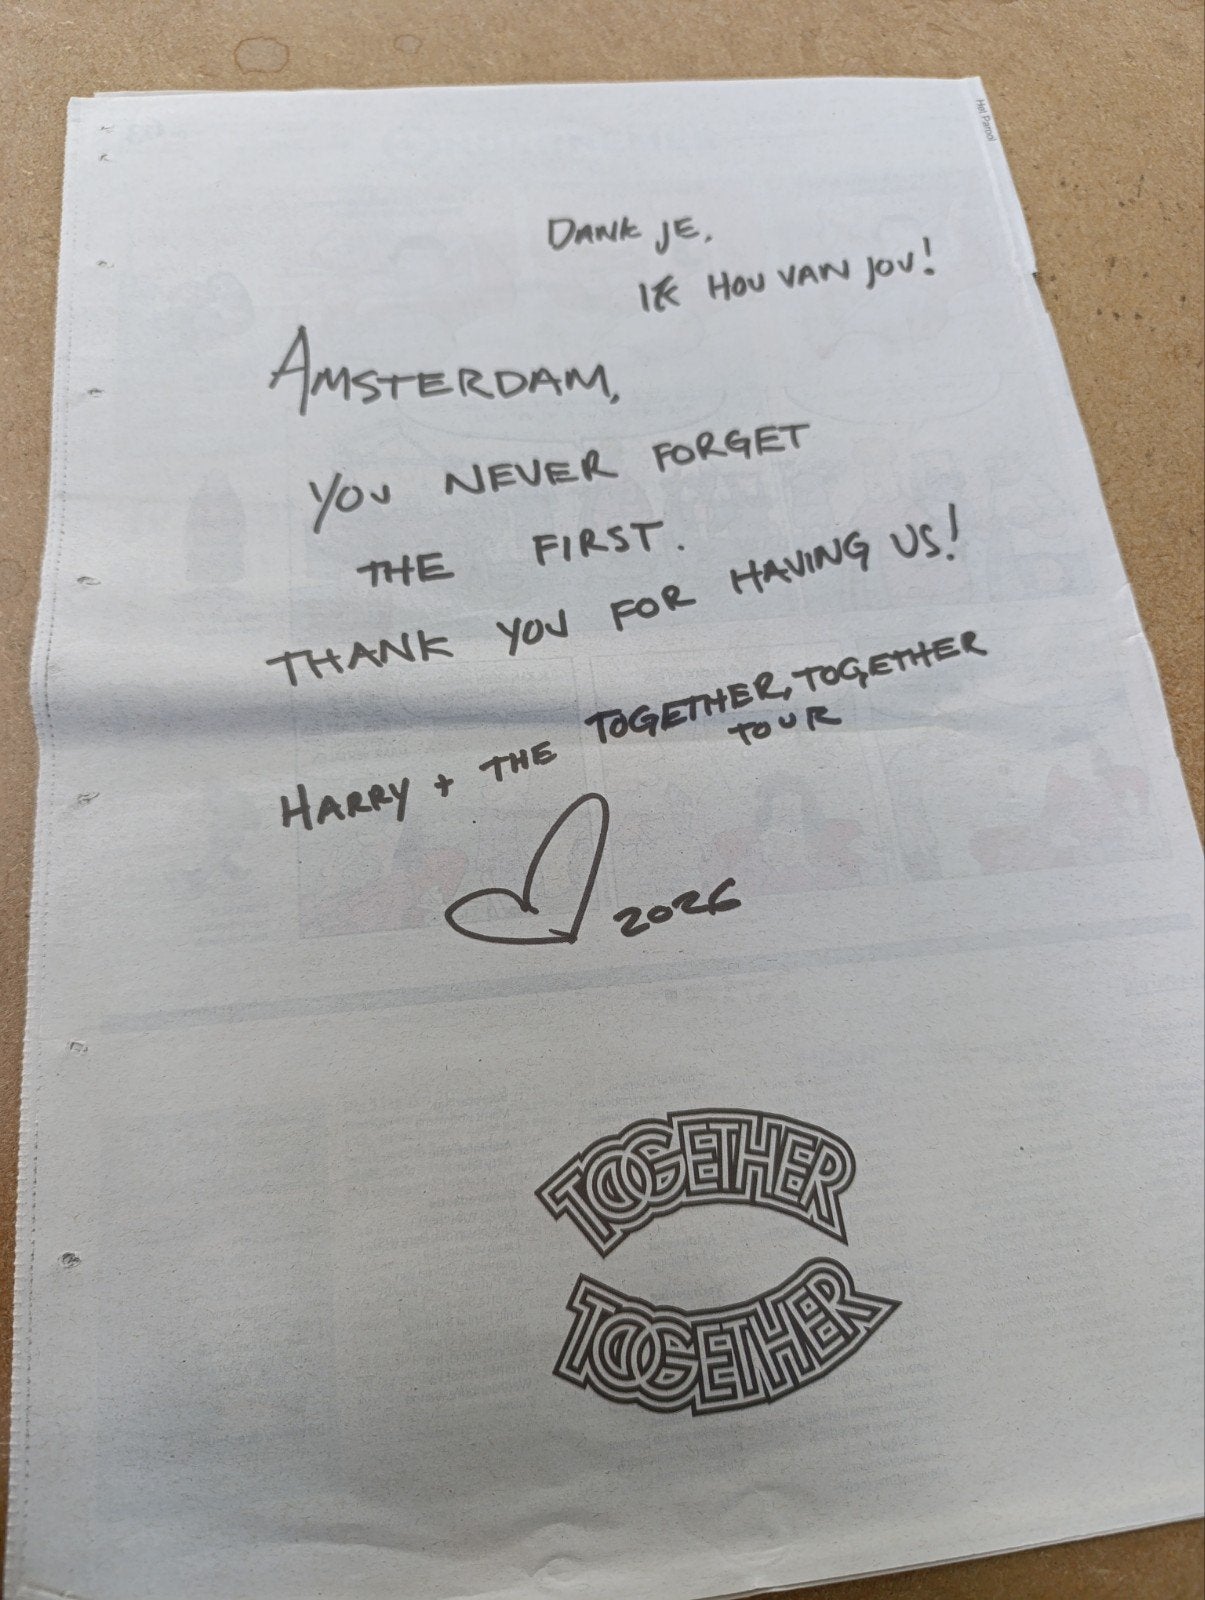 Het Parool
DANK JE,
IK HOU VAN JOU!
AMSTERDAM,
YOU NEVER FORGET
THE FIRST.
THANK YOU FOR HAVING US!
HARRY + THE TOGETHER, TOGETHER
TOUR
2026
TOGETHER
TOGETHER